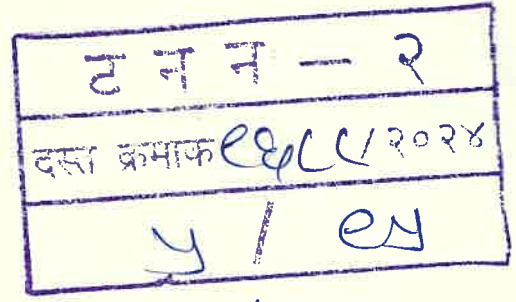 ट न न — २
दस्त क्रमाक १६८८/२०२४
५ / १५